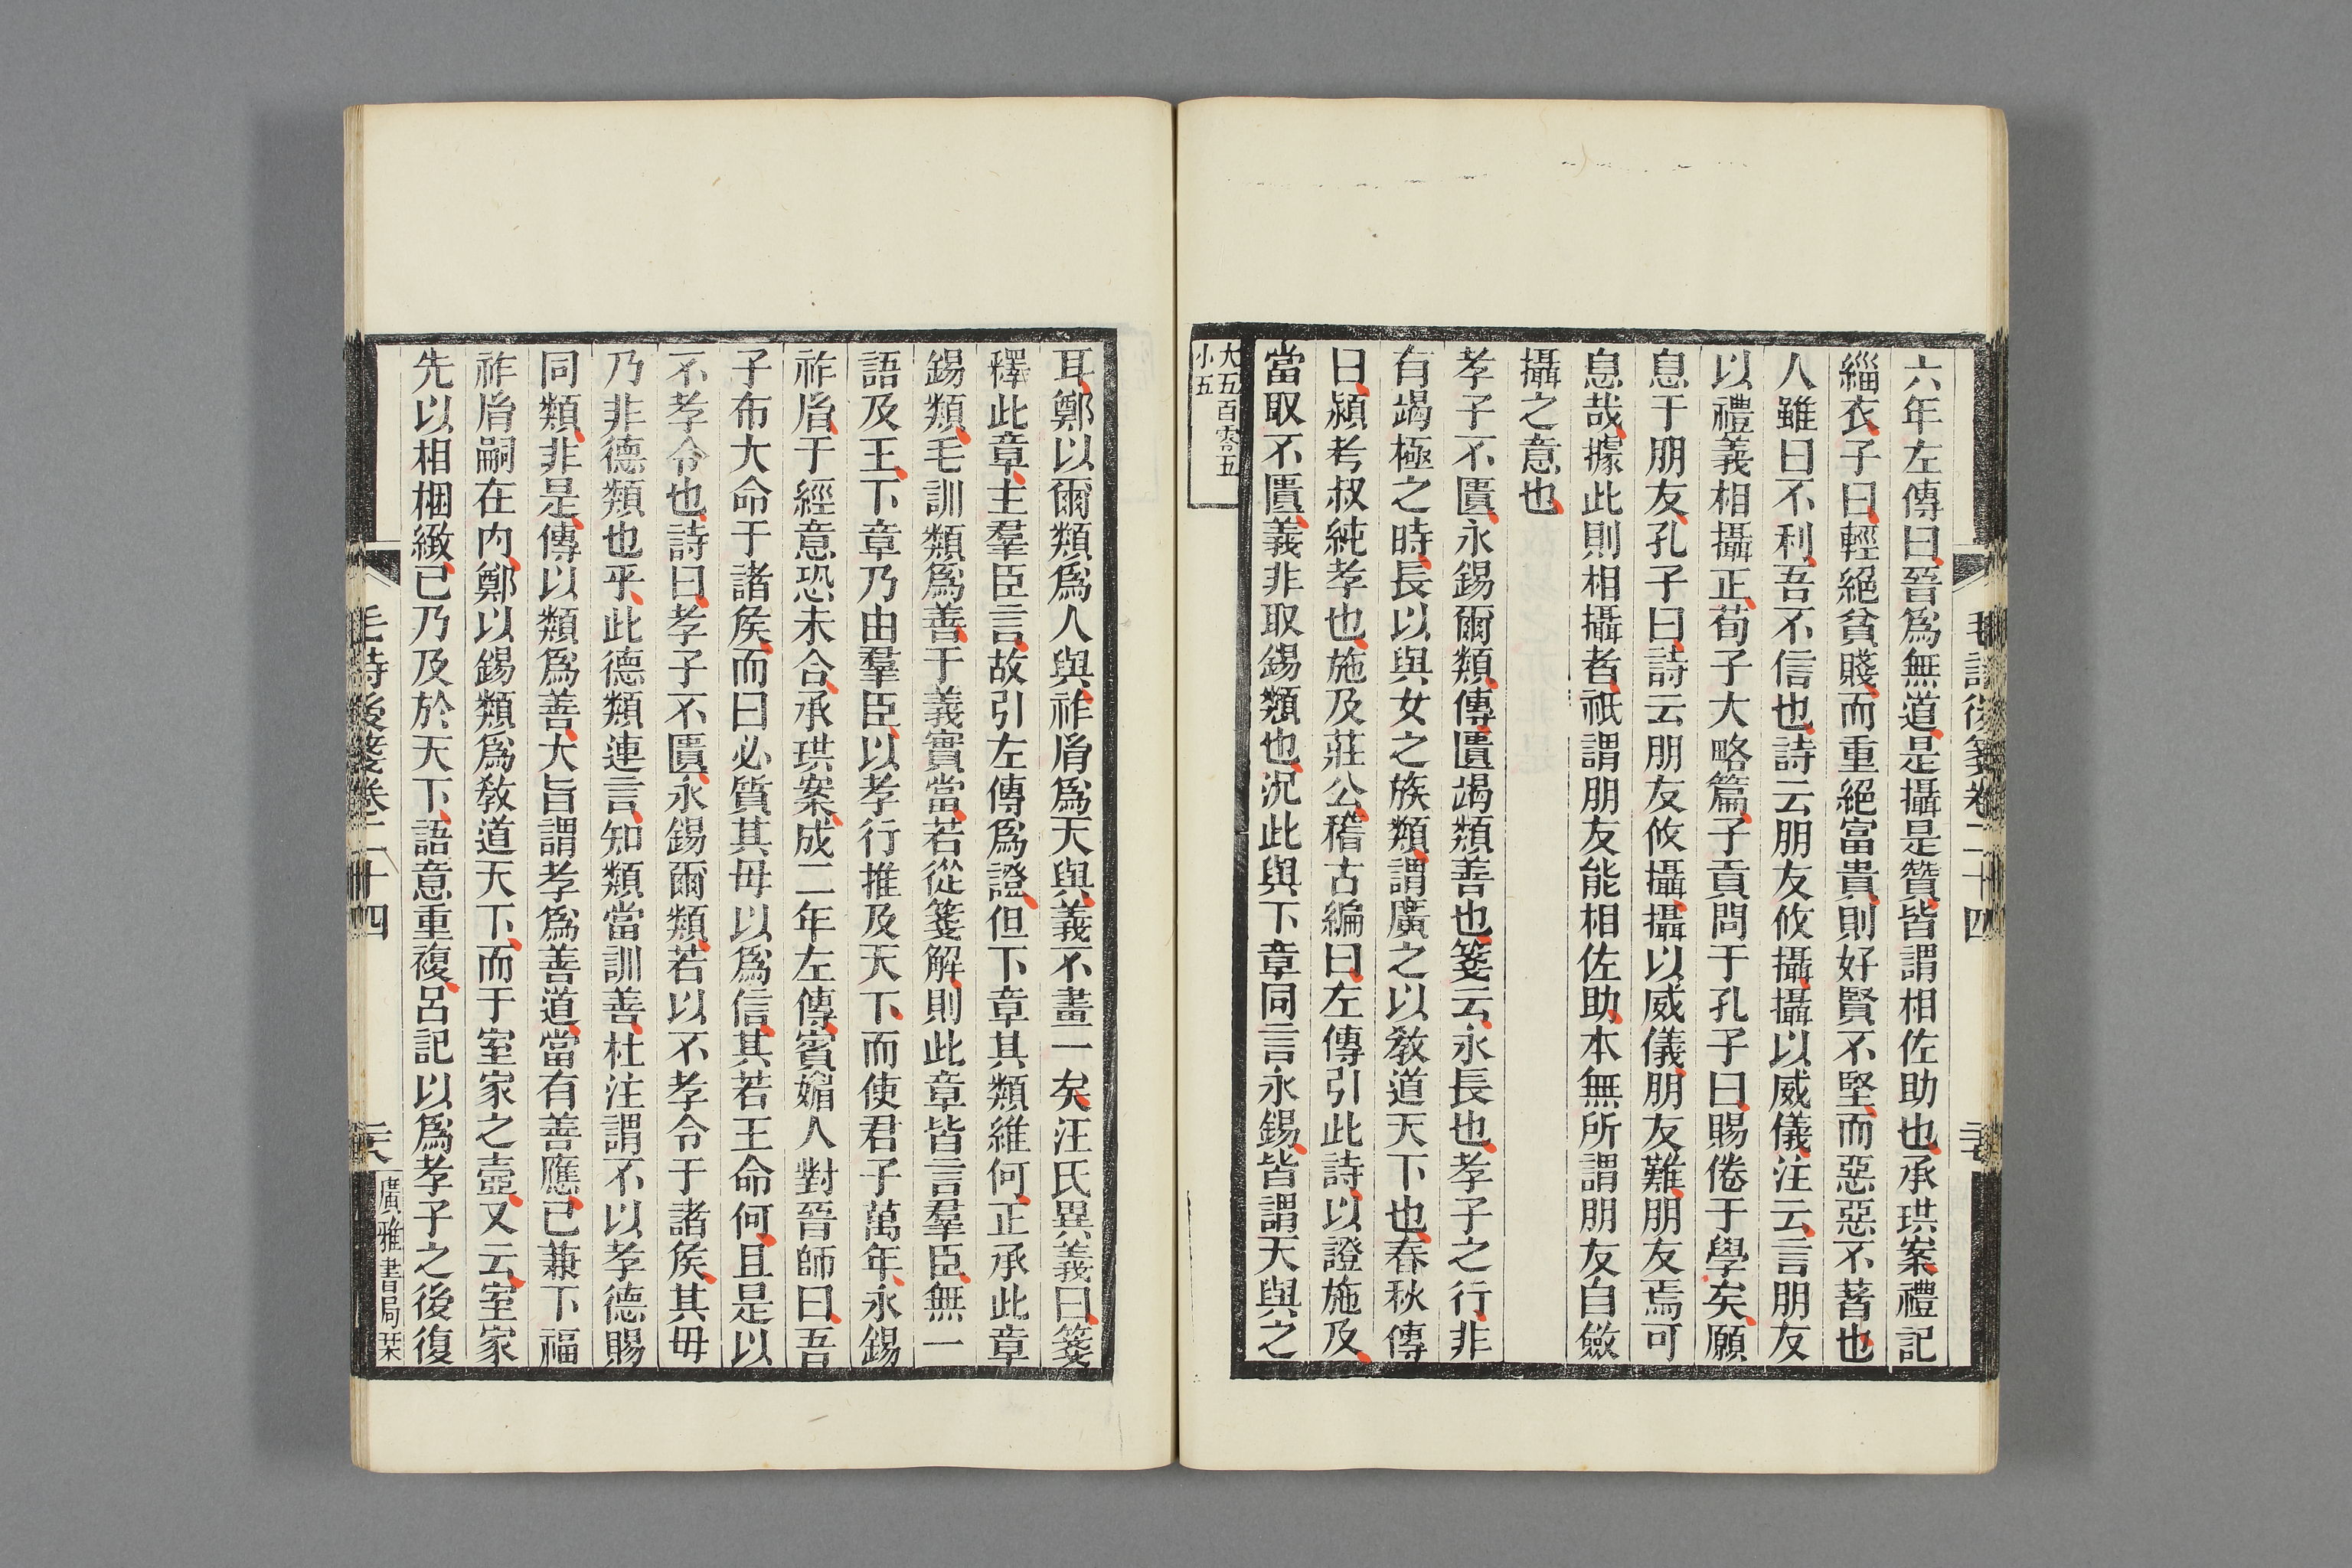 毛詩後箋卷二十四
六年左傳曰晉爲無道是攝是贊皆謂相佐助也承珙案禮記
緇衣子曰輕絕貧賤而重絕富貴則好賢不堅而惡惡不著也
人雖曰不利吾不信也詩云朋友攸攝攝以威儀注云言朋友
以禮義相攝正荀子大略篇子貢問于孔子曰賜倦于學矣願
息于朋友孔子曰詩云朋友攸攝攝以威儀朋友難朋友焉可
息哉據此則相攝者祇謂朋友能相佐助本無所謂朋友自斂
攝之意也
孝子不匱永錫爾類傳匱竭類善也箋云永長也孝子之行非
有竭極之時長以與女之族類謂廣之以敎道天下也春秋傳
曰潁考叔純孝也施及莊公稽古編曰左傳引此詩以證施及
當取不匱義非取錫類也況此與下章同言永錫皆謂天與之
大五百零五
小五
耳鄭以爾類爲人與祚𦙍爲天與義不畫一矣汪氏異義曰箋
釋此章主羣臣言故引左傳爲證但下章其類維何正承此章
錫類毛訓類爲善于義實當若從箋解則此章皆言羣臣無一
語及王下章乃由羣臣以孝行推及天下而使君子萬年永錫
祚𦙍于經意恐未合承珙案成二年左傳賓媚人對晉師曰吾
子布大命于諸侯而曰必質其母以爲信其若王命何且是以
不孝令也詩曰孝子不匱永錫爾類若以不孝令于諸侯其毋
乃非德類也乎此德類連言知類當訓善杜注謂不以孝德賜
同類非是傳以類爲善大旨謂孝爲善道當有善應已兼下福
祚𦙍嗣在內鄭以錫類爲敎道天下而于室家之壼又云室家
先以相梱緻已乃及於天下語意重複呂記以爲孝子之後復
毛詩後箋卷二十四
廣雅書局栞